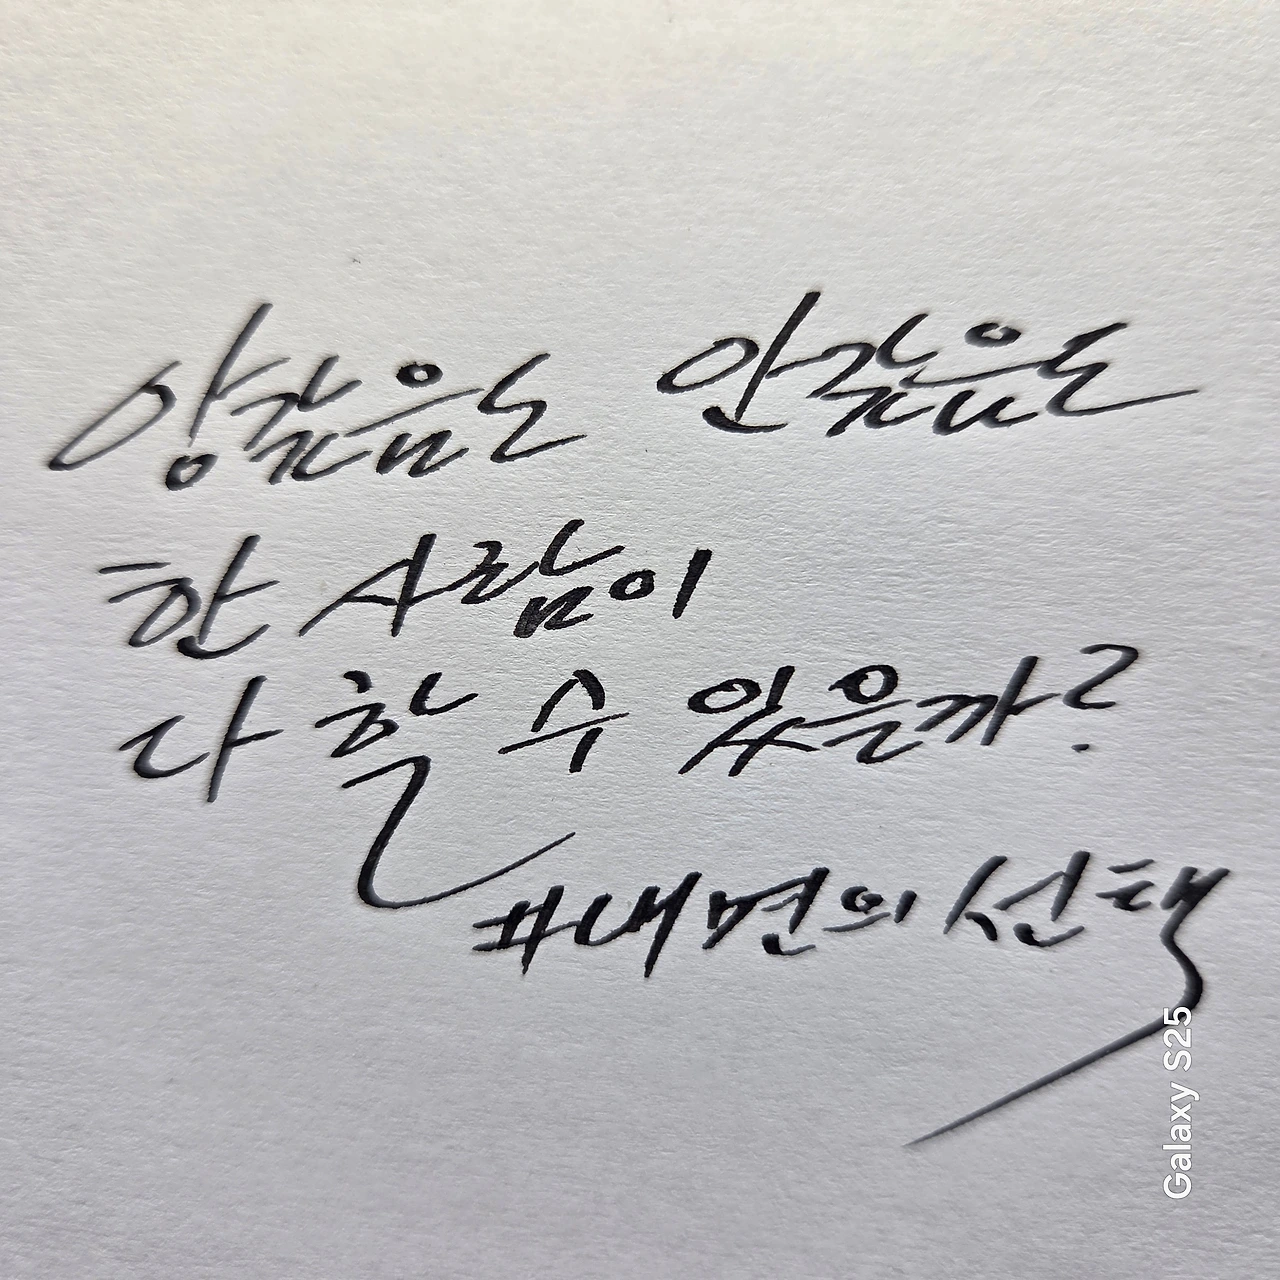 앙갚음도 안갚음도
한 사람이
다 할 수 있을까?
#내면의 선택
Galaxy S25